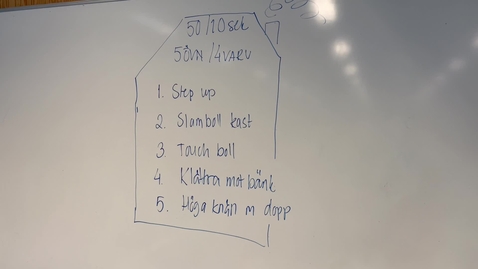 50/10sek
5ÖVN/4VARV
1. Step up
2. Slamboll kast
3 Touch boll
4. Klättra mot bänk
5. Höga knän m dopp